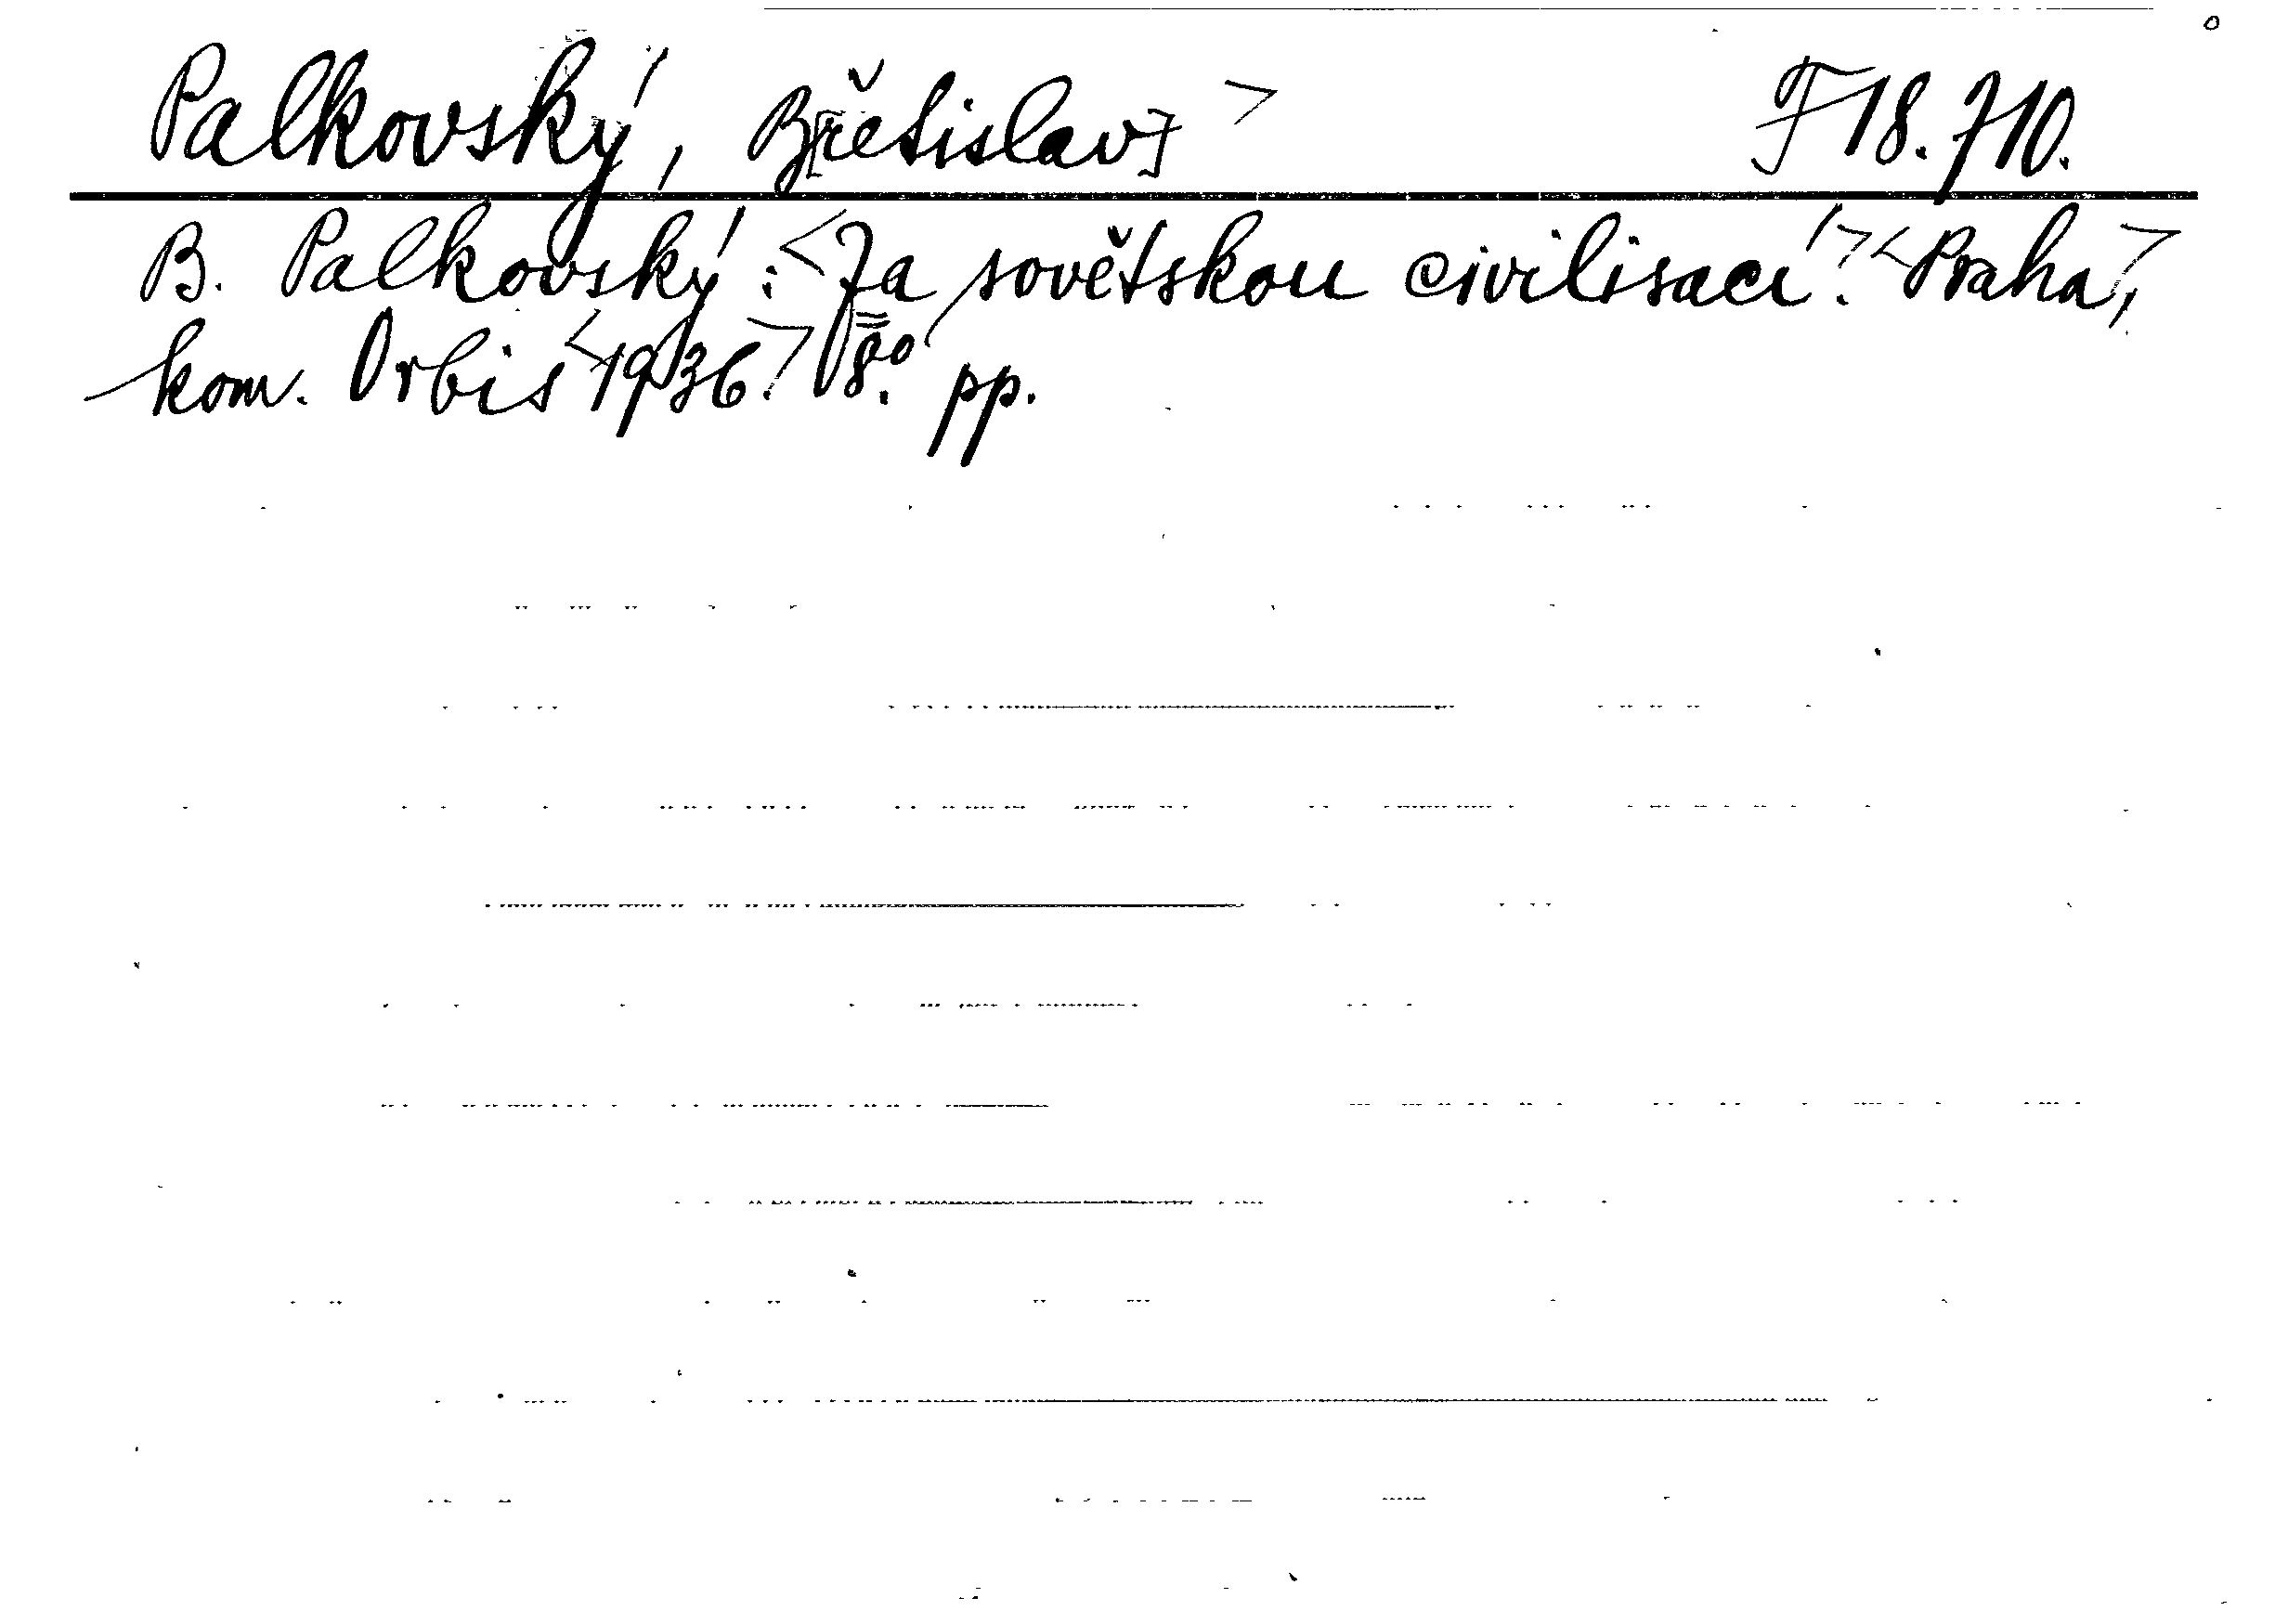 Palkovský, B[řetislav]> F 18.710.
B. Palkovský: <Za sovětskou civilisací.> <Praha>,
kom. Orbis <1936.> 8º. pp.